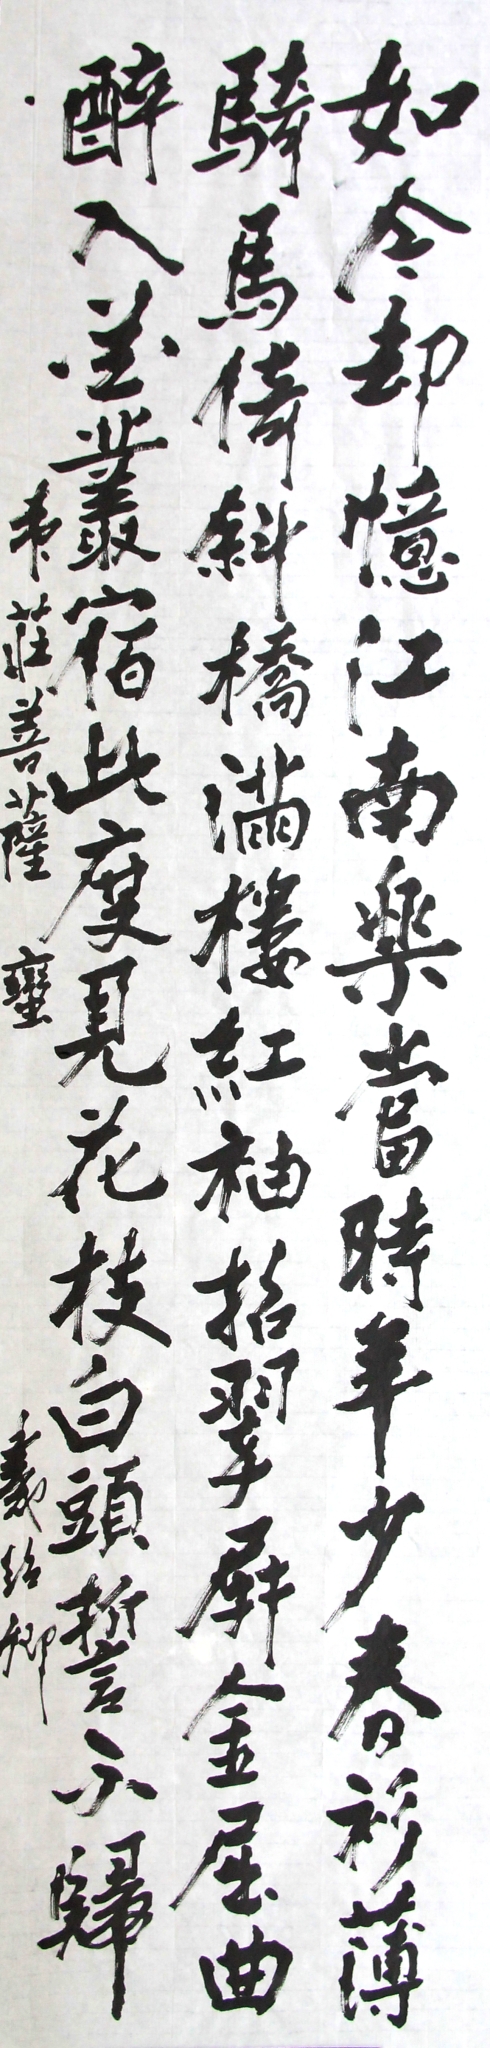 如今却憶江南樂當時年少春衫薄
騎馬倚斜橋滿樓紅袖招翠屏金屈曲
醉入花叢宿此度見花枝白頭誓不歸
韋莊菩薩蠻